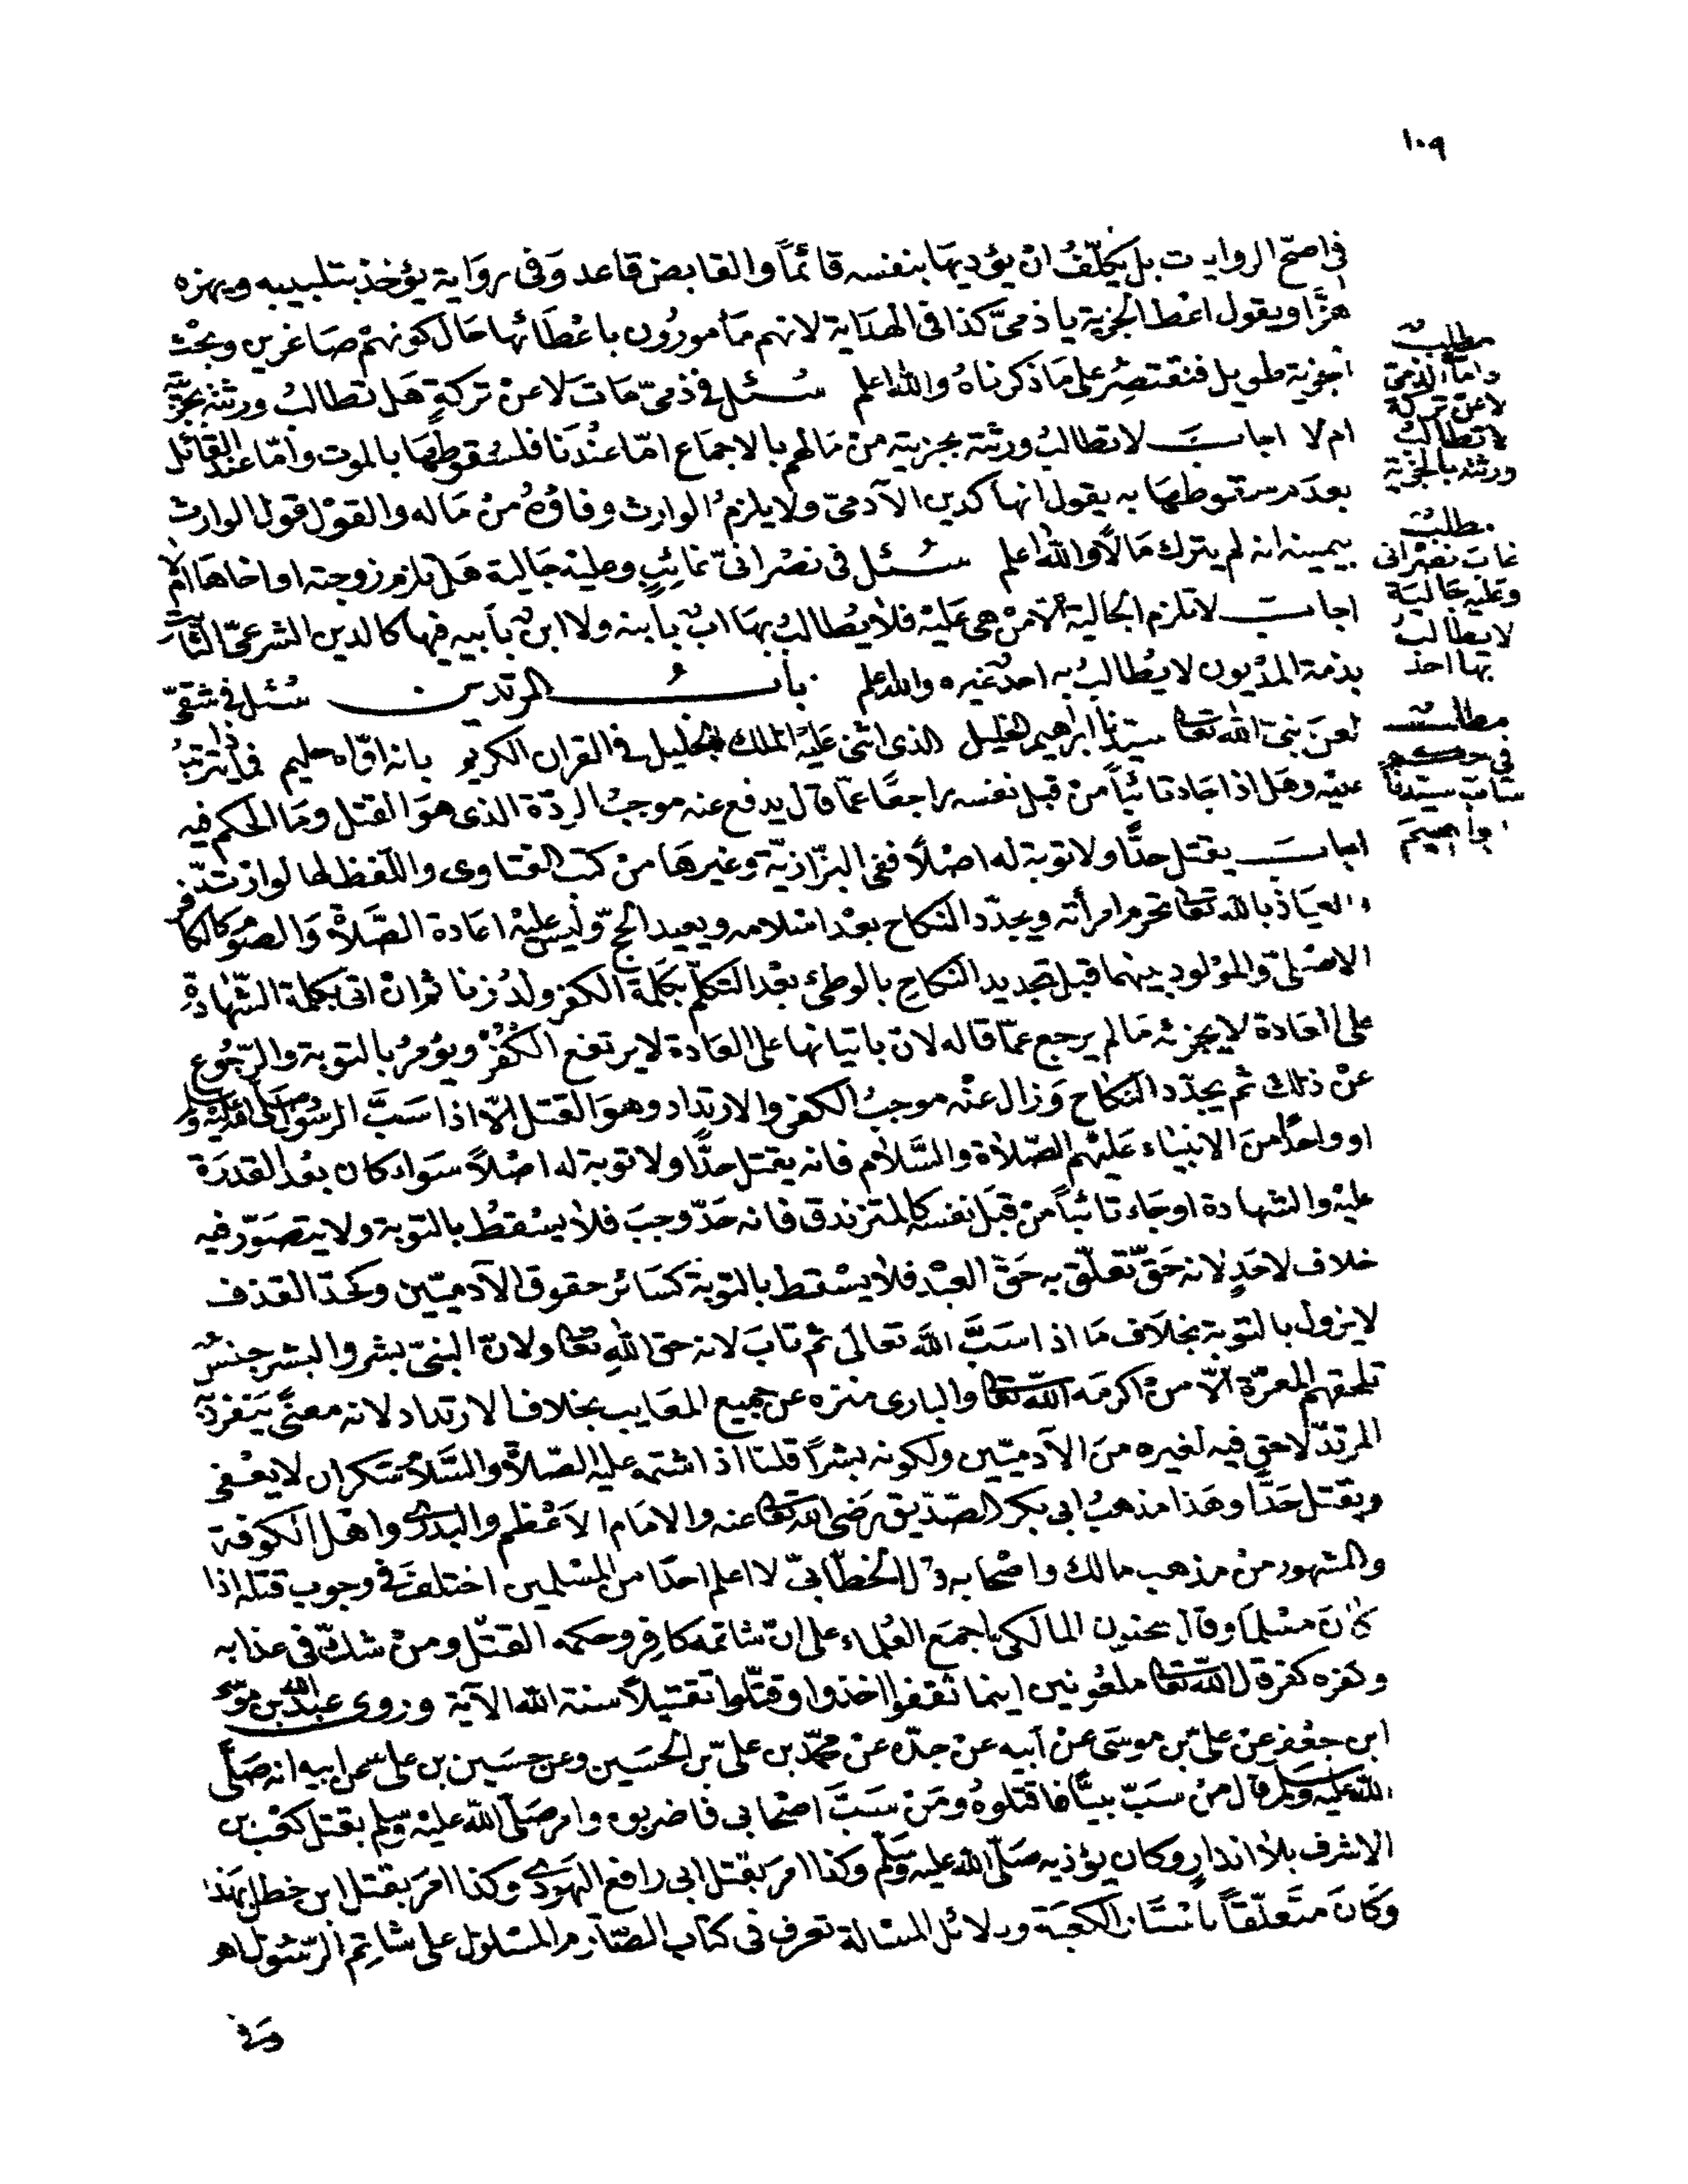 ١٠٩
في اصحّ الروايات بل يكلّفُ ان يؤديها بنفسه قائماً والقابض قاعد وَفى رِوَاية يؤخذ بتلبيبه ويهزه
هزًّا ويقول اعْط الجزية يا ذمىّ كذا فى الهدَاية لانهم مَأمورُون باعْطَائها حَال كونهمْ صَاغرين وبحْث
الجزية طويل فنقتصِرُ على مَا ذكرناهُ والله اعلم سُئل فى ذمىّ مَاتَ لا عنْ تركةٍ هَل تطالبُ ورثته بجزيته
ام لا اجابَ لا تطالبُ ورثته بجزيته منْ مَالهم بالاجمَاع امّا عنْدَنا فلسُقوطِهَا بالموت وامّا عند القائل
بعدَم سقوطهَا به يقول انها كدين الآدمىّ ولا يلزمُ الوارث وفاؤهُ منْ مَاله والقوْل قول الوارث
بيمينه انه لم يترك مَالًا والله اعلم سُئل فى نصْرانىّ غائِبٍ وعليْه جَالية هَل يلزم زوجته او اخاهَا امْ لا
اجابَ لا تلزم الجالية الّا منْ هى عَليْه فلا يُطالبُ بهَا ابٌ بابنه ولا ابنٌ بأبيه فيها كالدين الشرعىّ الثابت
بذمة المدْيون لا يُطالبُ به احدٌ غيره والله اعلم بابُ المرتدين سُئل فى شقىّ
لعنَ نبىّ الله تعالى سيّدنا ابراهيم الخليل الذى اثنى عَليْه الملك الجليل فى القران الكريم بانه اوّاه حليم فماذا يترتبُ
عليْه وهَل اذا جَاء تائباً منْ قبل نفسه راجعًا عمّا قال يدفع عنه موجبُ الردّة الذى هوَ القتل ومَا الحكم فيه
اجابَ يقتل حدًّا ولا توبة له اصْلًا ففى البزّازيّة وغيرهَا منْ كتب الفتاوى واللّفظ لها لو ارْتدّ
والعيَاذ بالله تعالى تحرم امرأته ويجدّد النكاح بعْد اسْلامه ويعيد الحجّ وليْسَ عليْه اعَادة الصَّلاة وَالصوم كالكافر
الاصْلىّ والموْلود بينهما قبل تجديد النكاح بالوطئ بعْد التكلّم بكلمة الكفر ولدُ زنا ثم ان اتى بكلمة الشّهادة
على العَادة لا يجزئه مَا لم يرجع عمّا قاله لانّ باتيانها على العَادة لا يرتفع الكُفْرُ ويؤمرُ بالتوبة والرّجُوع
عنْ ذلك ثم يجدّد النكاح وَزال عنْه موجبُ الكفر والارتداد وهوَ القتل الّا اذا سَبَّ الرسُول صلى الله عليه وسلم
او واحدًا منَ الانبيَاء عَليْهم الصّلاة والسَّلام فانه يقتل حدًّا ولا توبة له اصْلاً سَواء كان بعْد القدرَة
عليْه والشهادة اوجَاء تائباً منْ قبَل نفسه كالمتزندق فانه حَدّ وجبَ فلا يسْقطُ بالتوبة ولا يتصَوّر فيه
خلاف لاحَدٍ لانه حَقّ تعلّق به حَقّ العبْد فلا يسْقط بالتوبة كسَائر حقوق الآدميّين وكحدّ القذف
لا يزول بالتوبة بخلاف مَا اذا سَبَّ اللهَ تعَالَى ثم تابَ لانه حق اللهِ تعالى ولانّ النبىّ بشر والبشر جنسٌ
تلحقهم المعرّة الّا منْ اكرمَه الله تعالى والبارى منزه عن جميع المعَايب بخلاف الارتداد لانه معنىً يَتفرد به
المرتدّ لا حق فيه لغيره منَ الآدميّين ولكونه بشراً قلنا اذا شتمه عليه الصّلاة والسَّلام سَكران لا يعْفى
ويقتل حَدًّا وهَذا مذهبُ ابى بكر الصّدّيق رَضى الله تعالى عنه والامَام الاعْظم والبدرى واهْل الكوفة
والمشهور منْ مذهب مالك واصْحابه قال الخطّابىّ لا اعلم احدًا من المسْلمين اختلفَ فى وجوب قتله اذا
كانَ مسْلمًا وقال سحنون المالكى اجمعَ العُلماء على انّ شاتمه كافِر وحكمه القتل ومنْ شكّ فى عذابه
وكفره كفر قال الله تعالى ملعُونين اينما ثقفوا اخذوا وقتّلوا تقتيلاً سنة الله الآية وروى عبد الله بن موسى
ابن جعْفر عنْ علىّ بن موسَى عنْ ابيه عنْ جدّه عنْ محمّد بن علىّ بن الحسَين وعن حسَين بن على عن ابيه انه صَلَّى
الله عليه وسلم قال منْ سَبّ نبيًّا فاقتلوهُ ومَنْ سَبَّ اصْحابى فاضربوه وامر صَلّى الله عليْه وسلم بقتل كعْب بن
الاشرف بلا انذارٍ وكان يؤذيه صَلّى الله عليه وسَلّم وكذا امرَ بقتل ابى رافع اليهودى وكذا امَرَ بقتل ابن خطل بهذا
وَكَانَ متعلّقاً باسْتَار الكعْبَة ودلائل المسْالة تعرف فى كتاب الصّارم المسْلول على شاتِم الرّسُول اهـ
مطلبٌ
مات الذمىّ
لا عن تركة
لا تطالبُ
ورثته بالجزية
مطلبٌ
غابَ نصْرانى
وعليه جَاليَة
لا يطالبُ
بها احد
مطلبٌ
فى حكم
سابّ سيّدنا
ابراهيمَ